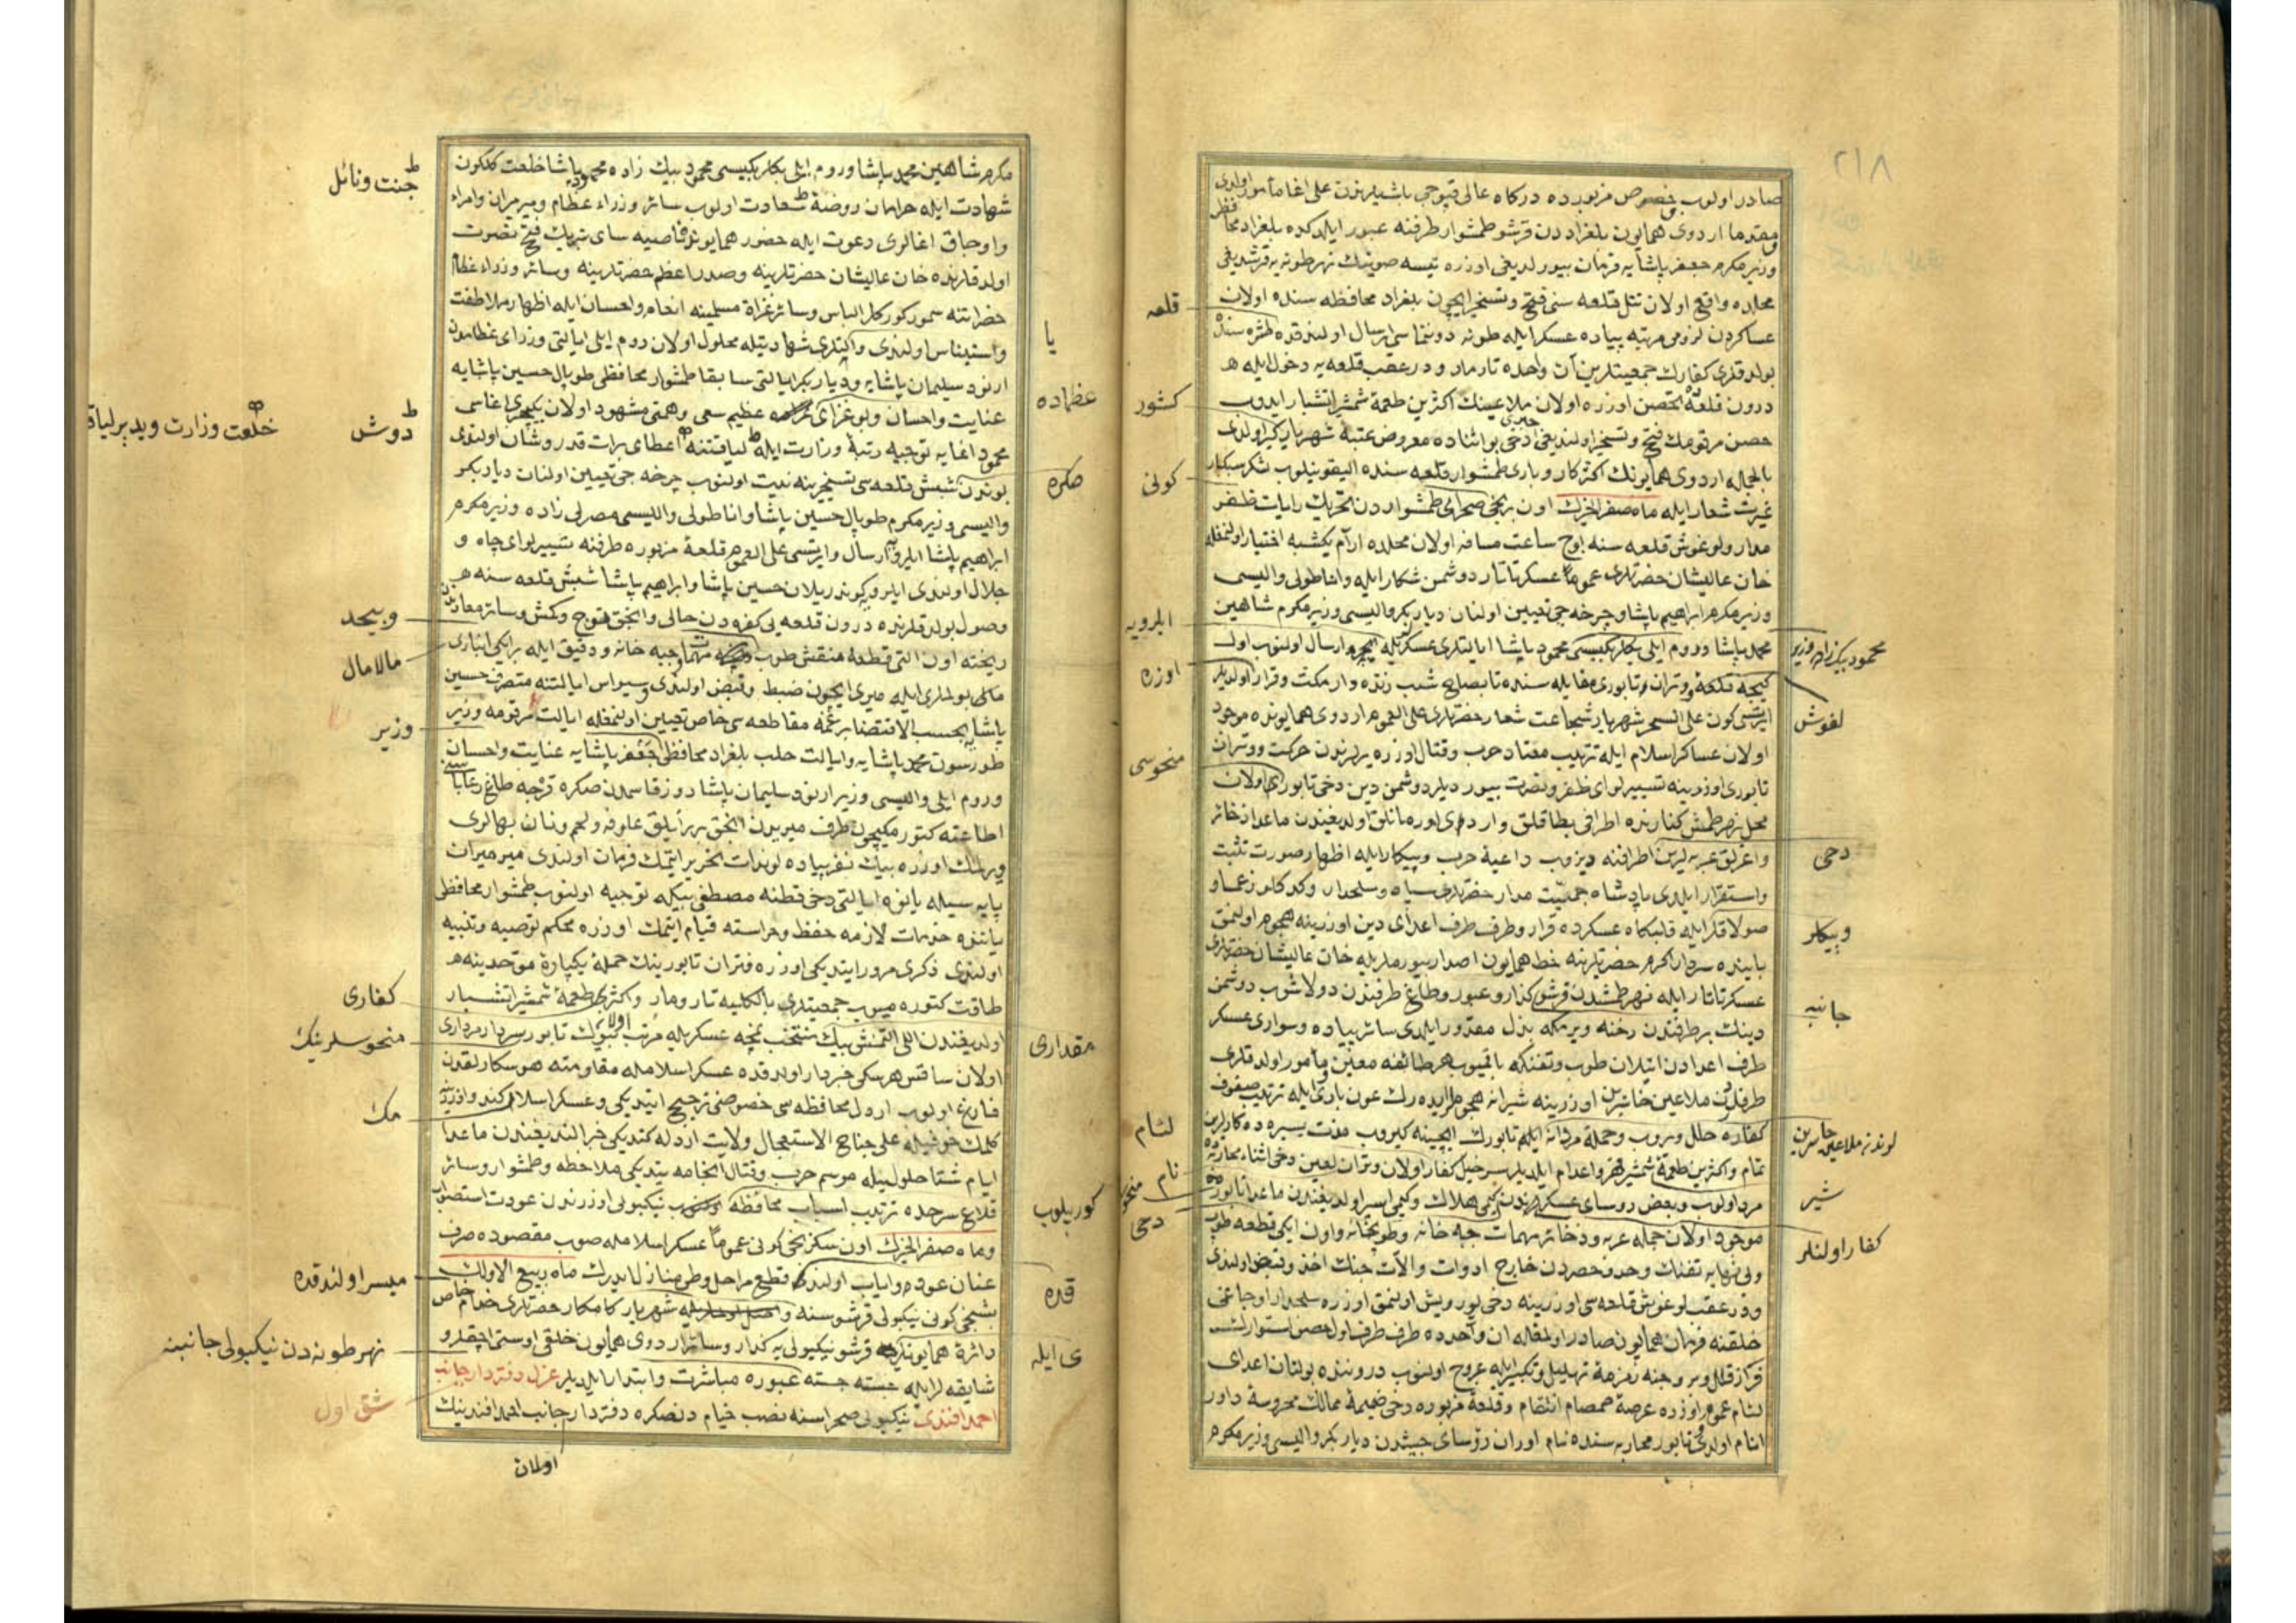 ٢١٨
صادر اولوب خصوص مزبورده درکاه عالی قپوجی باشیلرندن علی اغا مأمور اولدی
مقدما اردوی همایون بلغراددن قرشو طمشوار طرفنه عبور ایلدکده بلغراد محافظی
وزیر مکرم جعفر پاشایه فرمان بیورلدیغی اوزره تیسه صوینك نهر طونه یه قرشدیغی
محلده واقع اولان تتل قلعه سنی فتح و تسخیر ایچون بلغراد محافظه سنده اولان
عساکردن لزومی مرتبه پیاده عسکر ایله طونه دونماسی ارسال اولندقده طشره سنده
بولدقلری کفارك جمعیتلرین آن واحده تارمار و درعقب قلعه یه دخول ایله
درون قلعه ده تحصن اوزره اولان ملاعینك اکثرین طعمهٔ شمشیر اتشبار ایدوب
حصن مرقومك فتح و تسخیر اولندیغی خبری دخی بو اثناده معروض عتبهٔ شهریار کیر اولدی
بالجمله اردوی همایونك اکثر کار و باری طمشوار قلعه سنده الیقونیلوب لشکر سبکبار
غیرت شعار ایله ماه صفر الخیرك اون برنجی صحرای طمشواردن تحریك رایات ظفر
مدار ولوغوش قلعه سنه اوچ ساعت مسافه اولان محلده ارام یکشبه اختیار اولنمغله
خان عالیشان حضرتلری عموماً عسکر تاتار دوشمن شکار ایله واناطولی والیسی
وزیر مکرم ابراهیم پاشا و چرخه جی تعیین اولنان دیاربکر والیسی وزیر مکرم شاهین
محمد پاشا و روم ایلی بکلربکیسی محمود پاشا ایالتلری عسکریله ارسال اولنوب اول
کیجه قلعه و وتران تابوری مقابله سنده تا بصلح شب زنده دار مکث و قرار اولدیلر
ایرتسی کون علی السحر شهریار شجاعت شعار حضرتلری علی العموم اردوی همایونده موجود
اولان عساکر اسلام ایله ترتیب معتاد حرب و قتال اوزره یرلرندن حرکت و وتران
تابوری اوزرینه تسییر لوای ظفر و نصرت بیوردیلر دوشمن دین دخی تابوری اولان
محل نهر طمش کنارنده اطرافی بطاقلق واردی اورمانلق اولدیغندن ماعدا ذخائر
واعرلق عربه لرین اطرافنه دیزوب داعیهٔ حرب وپیکار ایله اظهار صورت تثبت
واستقرار ایلدی پادشاه جمعیت مدار حضرتلری سپاه وسلحدار وکدکلو زعما و
صولاقلر ایله قلبکاه عسکرده قرار و طرف طرف اعدای دین اوزرینه هجوم اولنمق
بابنده سردار اکرم حضرتلرینه خط همایون اصدار بیورملریله خان عالیشان حضرتلری
عسکر تاتار ایله نهر طمشدن قرشو کذار وعبور وطاغ طرفندن دولاشوب دوشمن
دینك بر طرفندن رخنه ویرمکه بذل مقدور ایلدی سائر پیاده وسواری عسکر
طرف اعدادن اتیلان طوب وتفنکه باقمیوب هر طائفه معین ومأمور اولدقلری
طرفدن ملاعین خاسرین اوزرینه شیرانه هجوملر ایدرك عون باری ایله ترتیب صفوف
کفاره خلل ویروب وحملهٔ مردانه ایله تابورك ایچینه کیروب مدت یسیره ده کارلرین
تمام واکثرین طعمهٔ شمشیر قهر واعدام ایلدیلر سرخیل کفار اولان وتران لعین دخی اثناء محاربه ده
مرد اولوب وبعض روسای عسکرلرندن کیمی هلاك وکیمی اسیر اولدیغندن ماعدا تابورده
موجود اولان جمله عربه وذخائر مهمات جبه خانه وطوپخانه واون ایکی قطعه طوپ
ولی نهایه تفنك وحد وحصردن خارج ادوات وآلات جنك اخذ وقبض اولندی
ودرعقب لوغوش قلعه سی اوزرینه دخی یوریش اولنمق اوزره سلحدار اوجاغی
خلقنه فرمان همایون صادر اولمغله ان واحدده طرف طرف اول حصن استوارك
فراز قلل وبروجنه زمزمهٔ تهلیل وتکبیر ایله عروج اولنوب دروننده بولنان اعدای
لئام عموم اوزره عرصهٔ صمصام انتقام وقلعهٔ مزبوره دخی ضمیمهٔ ممالك محروسهٔ داور
انام اولدی تابور محاربه سنده نام اوران رؤسای جیشدن دیاربکر والیسی وزیر مکرم
قلعه
کشور
کونی
ایلرویه
اوزره
منحوسی
لئام
نام
دخی
محمود بیك زاده وزیر
لغوش
دخی
وپیکار
جانبه
لوندنه ملاعین خاسرین
شیر
کفار اولنلر
مکرم شاهین محمد پاشا وروم ایلی بکلربکیسی محمود بیك زاده محمود پاشا خلعت کلکون
شهادت ایله خرامان روضهٔ سعادت اولوب سائر وزراء عظام ومیرمیران وامراء
واوجاق اغالری دعوت ایله حضور همایونه فاصیه سای تبریك فتح نصرت
اولدقلرنده خان عالیشان حضرتلرینه وصدر اعظم حضرتلرینه وسائر وزراء عظام
حضراتنه سمور کورکلر الباس وسائر غزاة مسلمینه انعام واحسان ایله اظهار ملاطفت
واستیناس اولندی واکثری شهادتیله محلول اولان روم ایلی ایالتی وزرای عظامدن
ارنود سلیمان پاشایه ودیاربکر ایالتی سابقا طمشوار محافظی طوپال حسین پاشایه
عنایت واحسان وبو غزای عظیم سعی وهمتی مشهود اولان یکیچری اغاسی
محمود اغایه توجیه رتبهٔ وزارت ایله لیاقتنه اعطای برات قدر وشان اولندی
بوندن شبش قلعه سی تسخیرینه نیت اولنوب چرخه جی تعیین اولنان دیاربکر
والیسی وزیر مکرم طوپال حسین پاشا واناطولی والیسی مصرلی زاده وزیر مکرم
ابراهیم پاشا ایلرو ارسال وایرتسی علی العموم قلعهٔ مزبوره طرفنه تسییر لوای جاه و
جلال اولندی ایلرویه کوندریلان حسین پاشا وابراهیم پاشا شبش قلعه سنه
وصول بولدقلرنده درون قلعه یی کفره دن خالی وانجق قوج وکش وسائر معادندن
ریخته اون التی قطعه منقش طوب مهمات وجبه خانه ودقیق ایله بر ایکی انباری
مالی بولمالری ایله میری ایچون ضبط وقبض اولندی وسیواس ایالتنه متصرف حسین
پاشایه بحسب الاقتضا برغمه مقاطعه سی خاص تعیین اولنمغله ایالت مرقومه وزیر
طورسون محمد پاشایه وایالت حلب بلغراد محافظی جعفر پاشایه عنایت واحسان
وروم ایلی والیسی وزیر ارنود سلیمان پاشا دوزقاسمدن صکره قرجه طاغ رعایاسنی
اطاعته کتورمکیچون طرف میریدن انجق برر ایلق علوفه ولحم ونان بهالری
ویرلمك اوزره بیك نفر پیاده لوندات تحریر ایتمك فرمان اولندی میرمیران
پایه سیله یانوه ایالتی دخی قطنه مصطفی بیکه توجیه اولنوب طمشوار محافظی
یانوه خدمات لازمه حفظ وحراسته قیام ایتمك اوزره محکم توصیه وتنبیه
اولندی ذکری مرور ایتدیکی اوزره وتران تابورینك حملهٔ یکپارهٔ موحدینه
طاقت کتوره میوب جمعیتلری بالکلیه تارومار واکثری طعمهٔ شمشیر اتشبار
اولدیغندن اللی التمش بیك منتخب نجه عسکریله مرتب بیوك تابور سردار مرداری
اولان ساقس هرسکی خبردار اولدقده عسکر اسلامله مقاومته هوسکار لقدن
فارغ اولوب اردل محافظه سی خصوصنی ترجیح ایتدیکی وعسکر اسلام کند واوزرینه
کلمك خوفیله علی جناح الاستعجال ولایت اردله کتدیکی خبر النديغندن ماعدا
ایام شتا حلولیله موسم حرب وقتال انجامه یتدیکی ملاحظه وطمشوار وسائر
قلاع سرحده ترتیب اسباب محافظه نیکبولی اوزرندن عودت استصواب
وماه صفر الخیرك اون سکزنجی کونی عموماً عسکر اسلامله صوب مقصوده صرف
عنان عوده وایاب اولندی قطع مراحل وطی منازل ایدرك ماه ربیع الاولك
بشنجی کونی نیکبولی قرشوسنه شهریار کامکار حضرتلری خدام خاص
دائرهٔ همایونلریله قرشو نیکبولی یه کذار وسائر اردوی همایون خلقی اوستی اچقلرو
شایقه لر ایله جسته جسته عبوره مباشرت وابتدار ایلدیلر عزل دفتردار جانب
احمد افندی نیکبولی صحراسنه نصب خیام دنصکره دفتردار جانب احمد افندینك
اولان
جنت ونائل
دوش
خلعت وزارت ویدیرلیاق
وبیحد
مالامال
وزیر
کفاری
منحوسلرینك
مك
میسر اولندقده
نهر طونه دن نیکبولی جانبنه
شق اول
یا
عظماده
صکره
مقداری
کوریلوب
قده
ی ایله